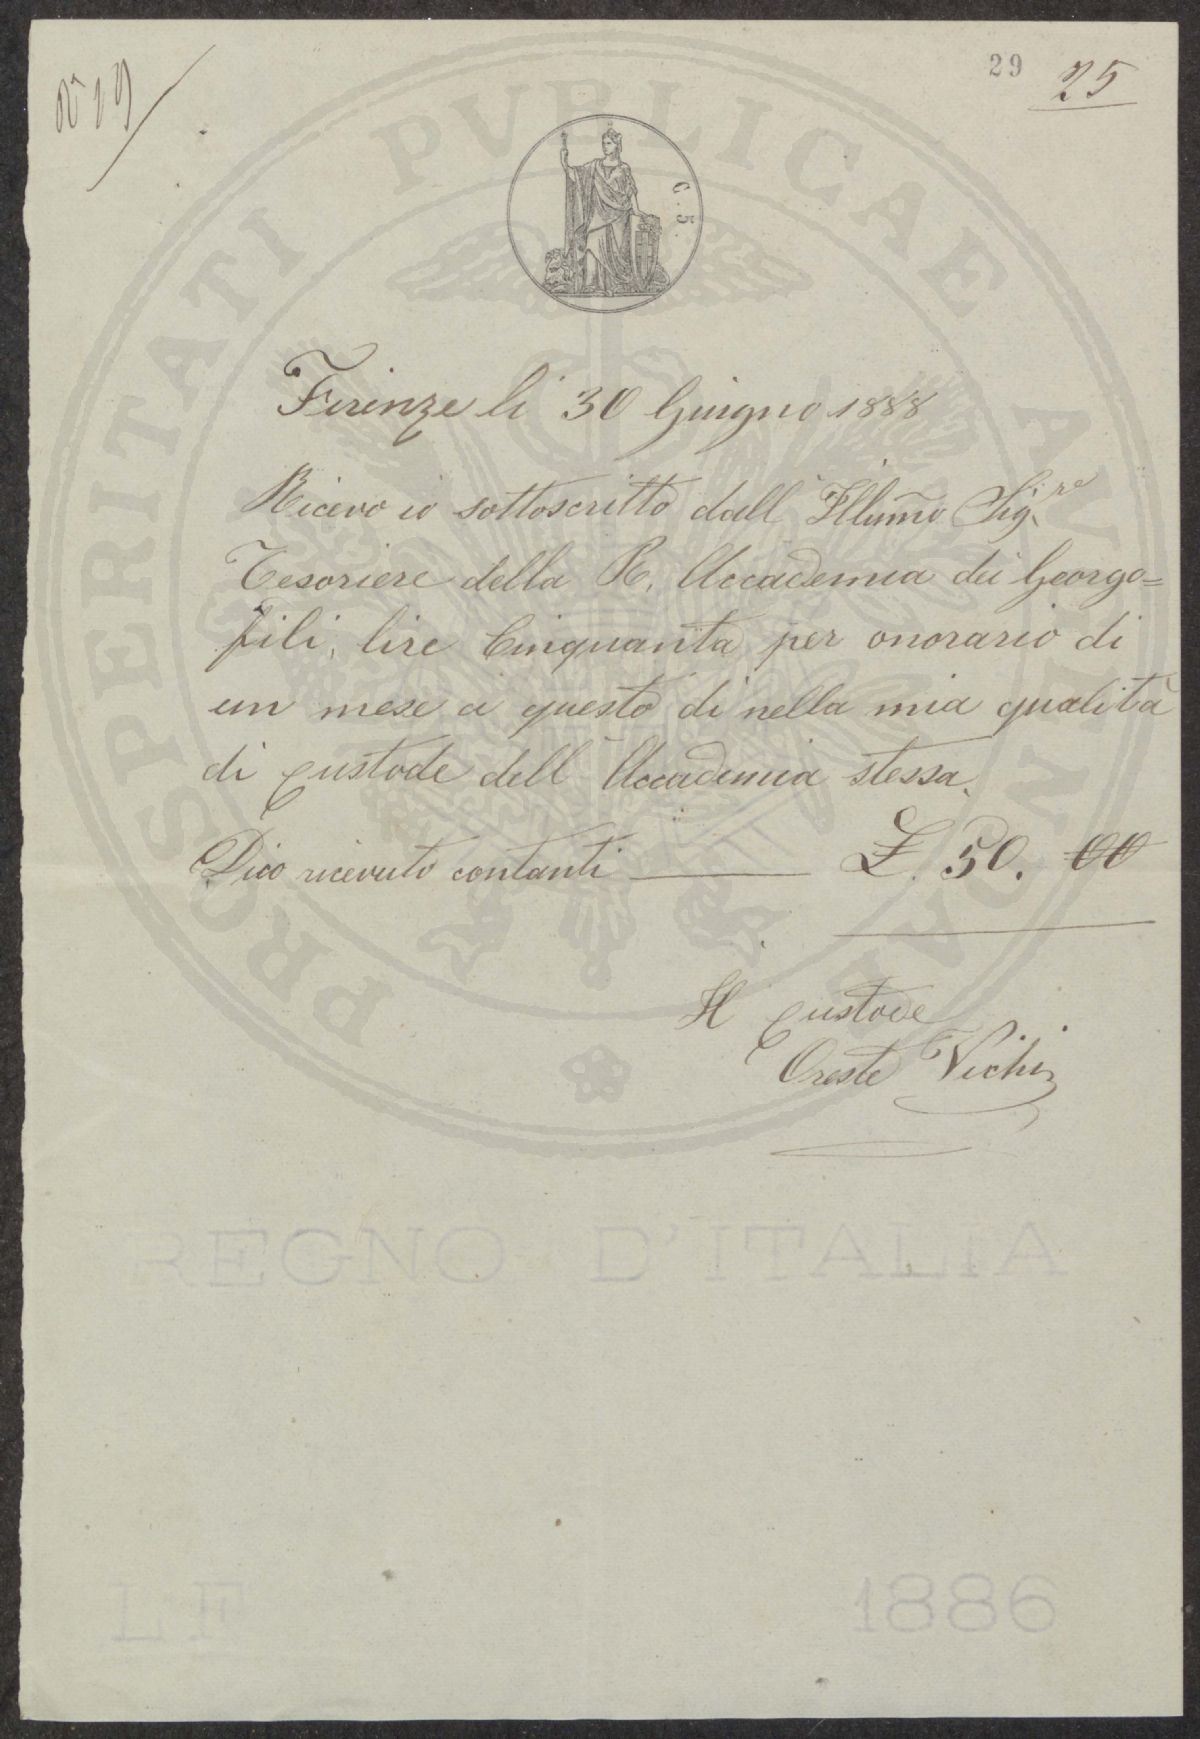 N° 19
29
25
PROSPERITATI PVBLICAE AVGENDAE
C. 5.
Firenze li 30 Giugno 1888
Ricevo io sottoscritto dall' Illumo Sigre
Tesoriere della R. Accademia dei Georgo=
fili, lire Cinquanta per onorario di
un mese a questo dì nella mia qualità
di custode dell' Accademia stessa.
Dico ricevuto contanti L. 50. 00
Il custode
Oreste Vichi
REGNO D'ITALIA
LF
1886